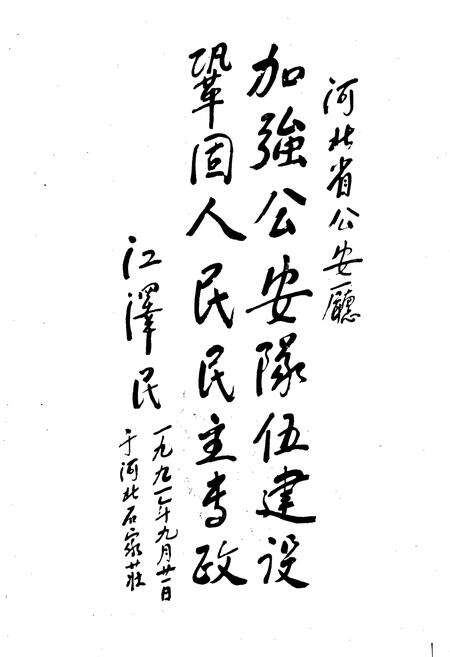 河北省公安廳
加強公安隊伍建设
鞏固人民民主专政
江澤民
一九九一年九月廿一日
于河北石家莊